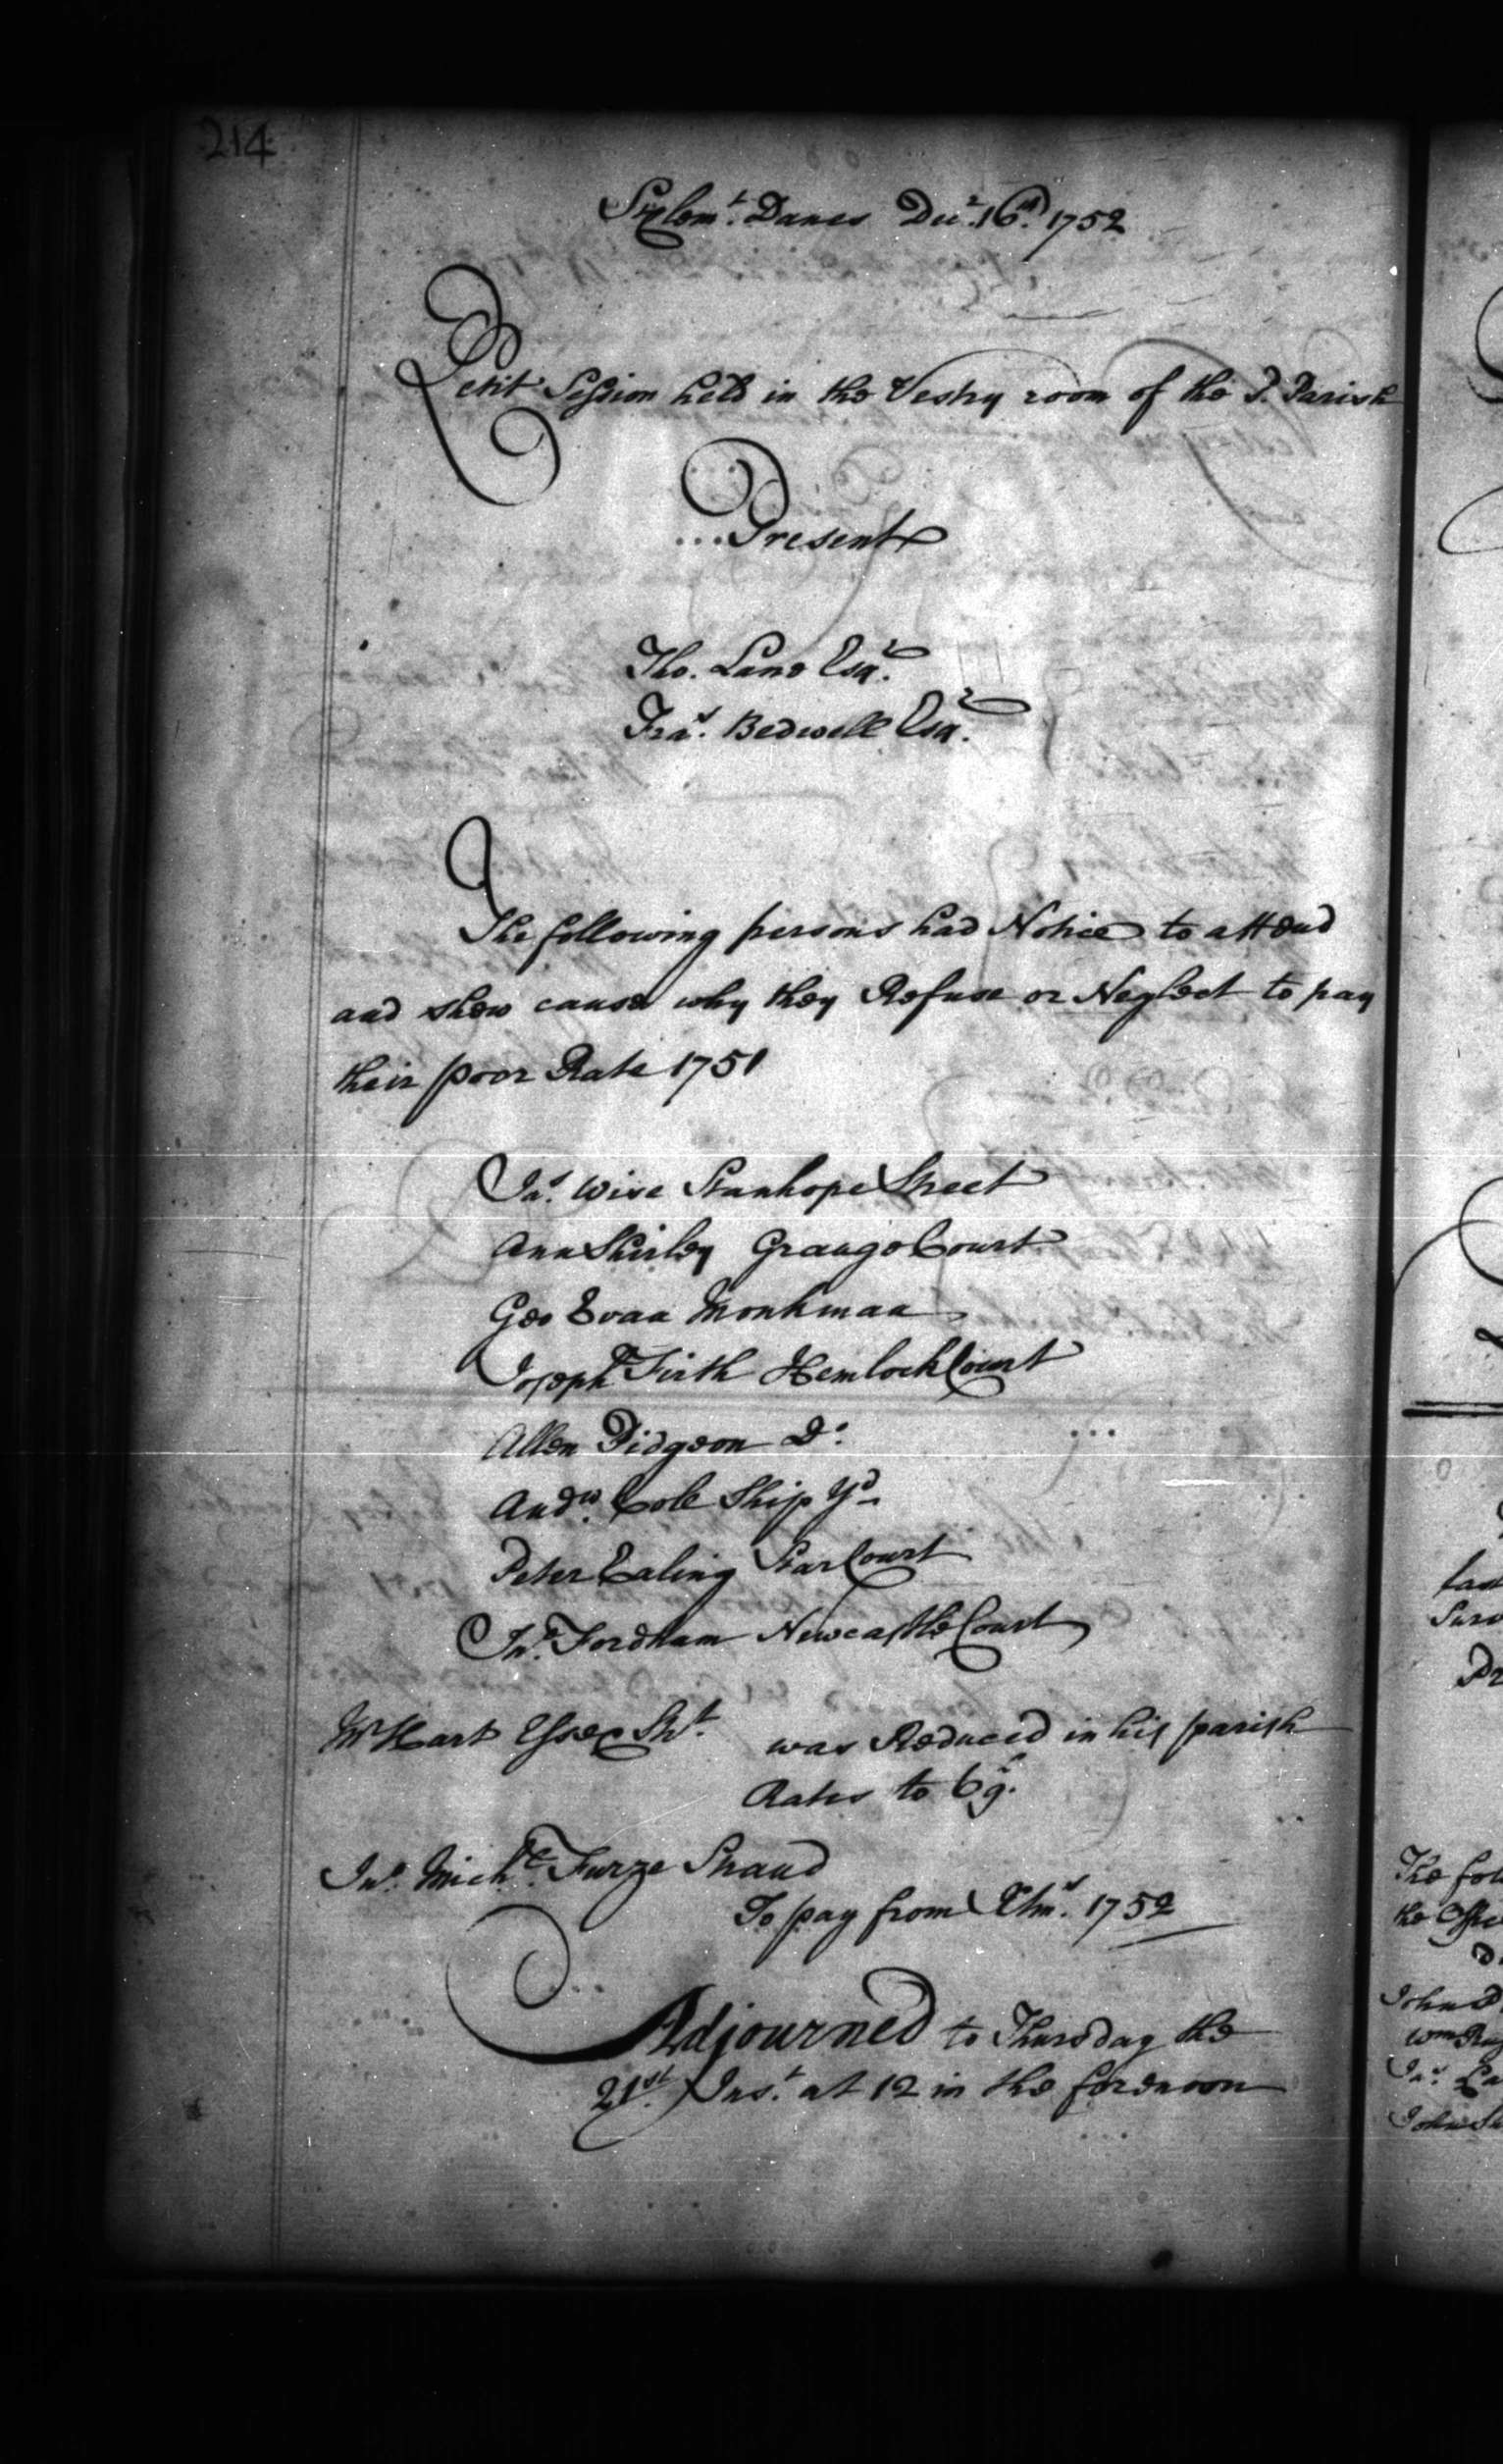 214
St Clemt. Danes Decr. 16th. 1752
Petit Session held in the Vestry room of the Sd. Parish
Present
Tho. Lane Esqr.
Fras. Bedwell Esqr.
The following persons had Notice to attend
and shew cause why they Refuse or Neglect to pay
their poor Rate 1751
Jas. Wise Stanhope Street
Ann Shirley Grange Court
Geo Evaa Monkmaa
Joseph Firth Hemlock Court
Allen Pidgeon Do.
Andw. Cole Ship Yd
Peter Ealing Star Court
Jno. Fordham Newcastle Court
Mr Hart Essex Strt. was Reduced in his parish
Rates to
Jno. Michl. Furze Strand
To pay from Xtms. 1752
Adjourned to Thursday the
21st. Inst. at 12 in the forenoon